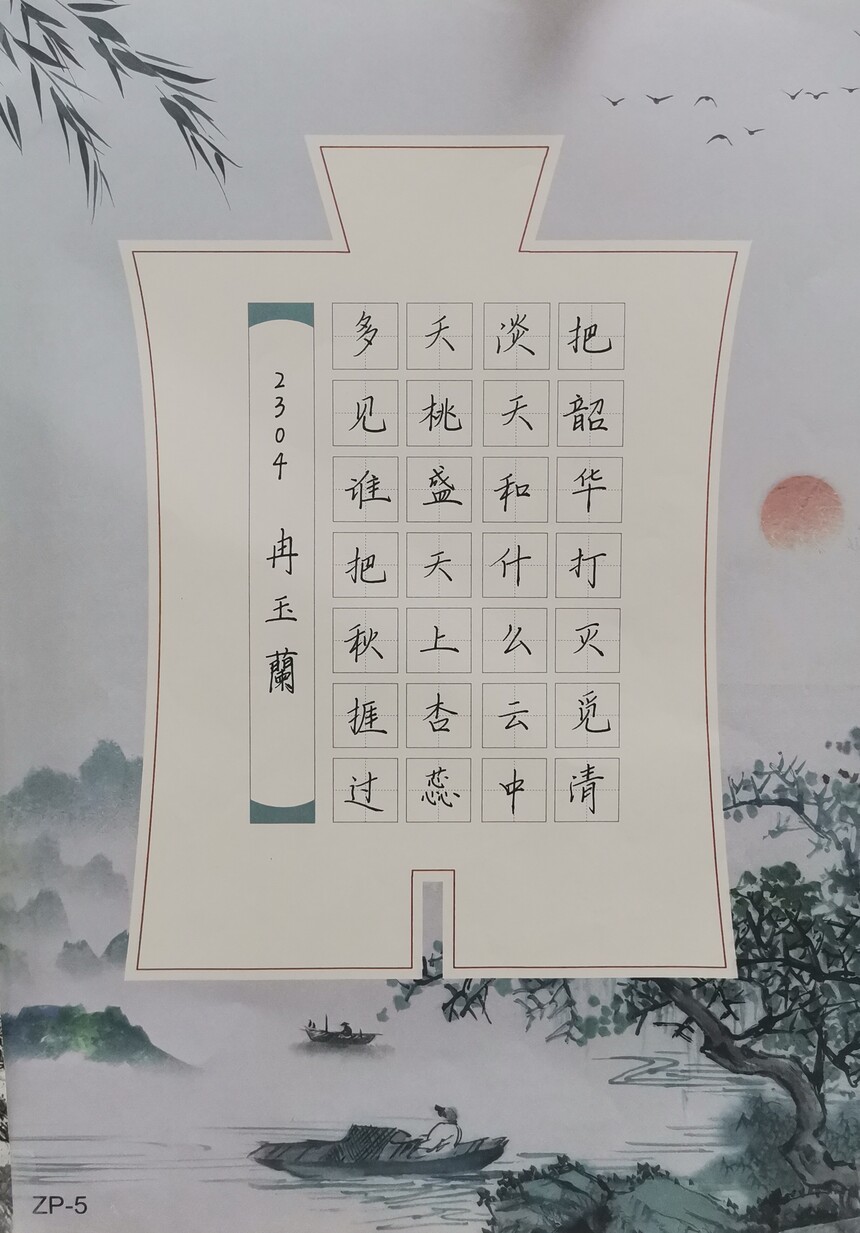 把韶华打灭觅清
淡天和什么云中
夭桃盛天上杏蕊
多见谁把秋捱过
2304 冉玉蘭
ZP-5